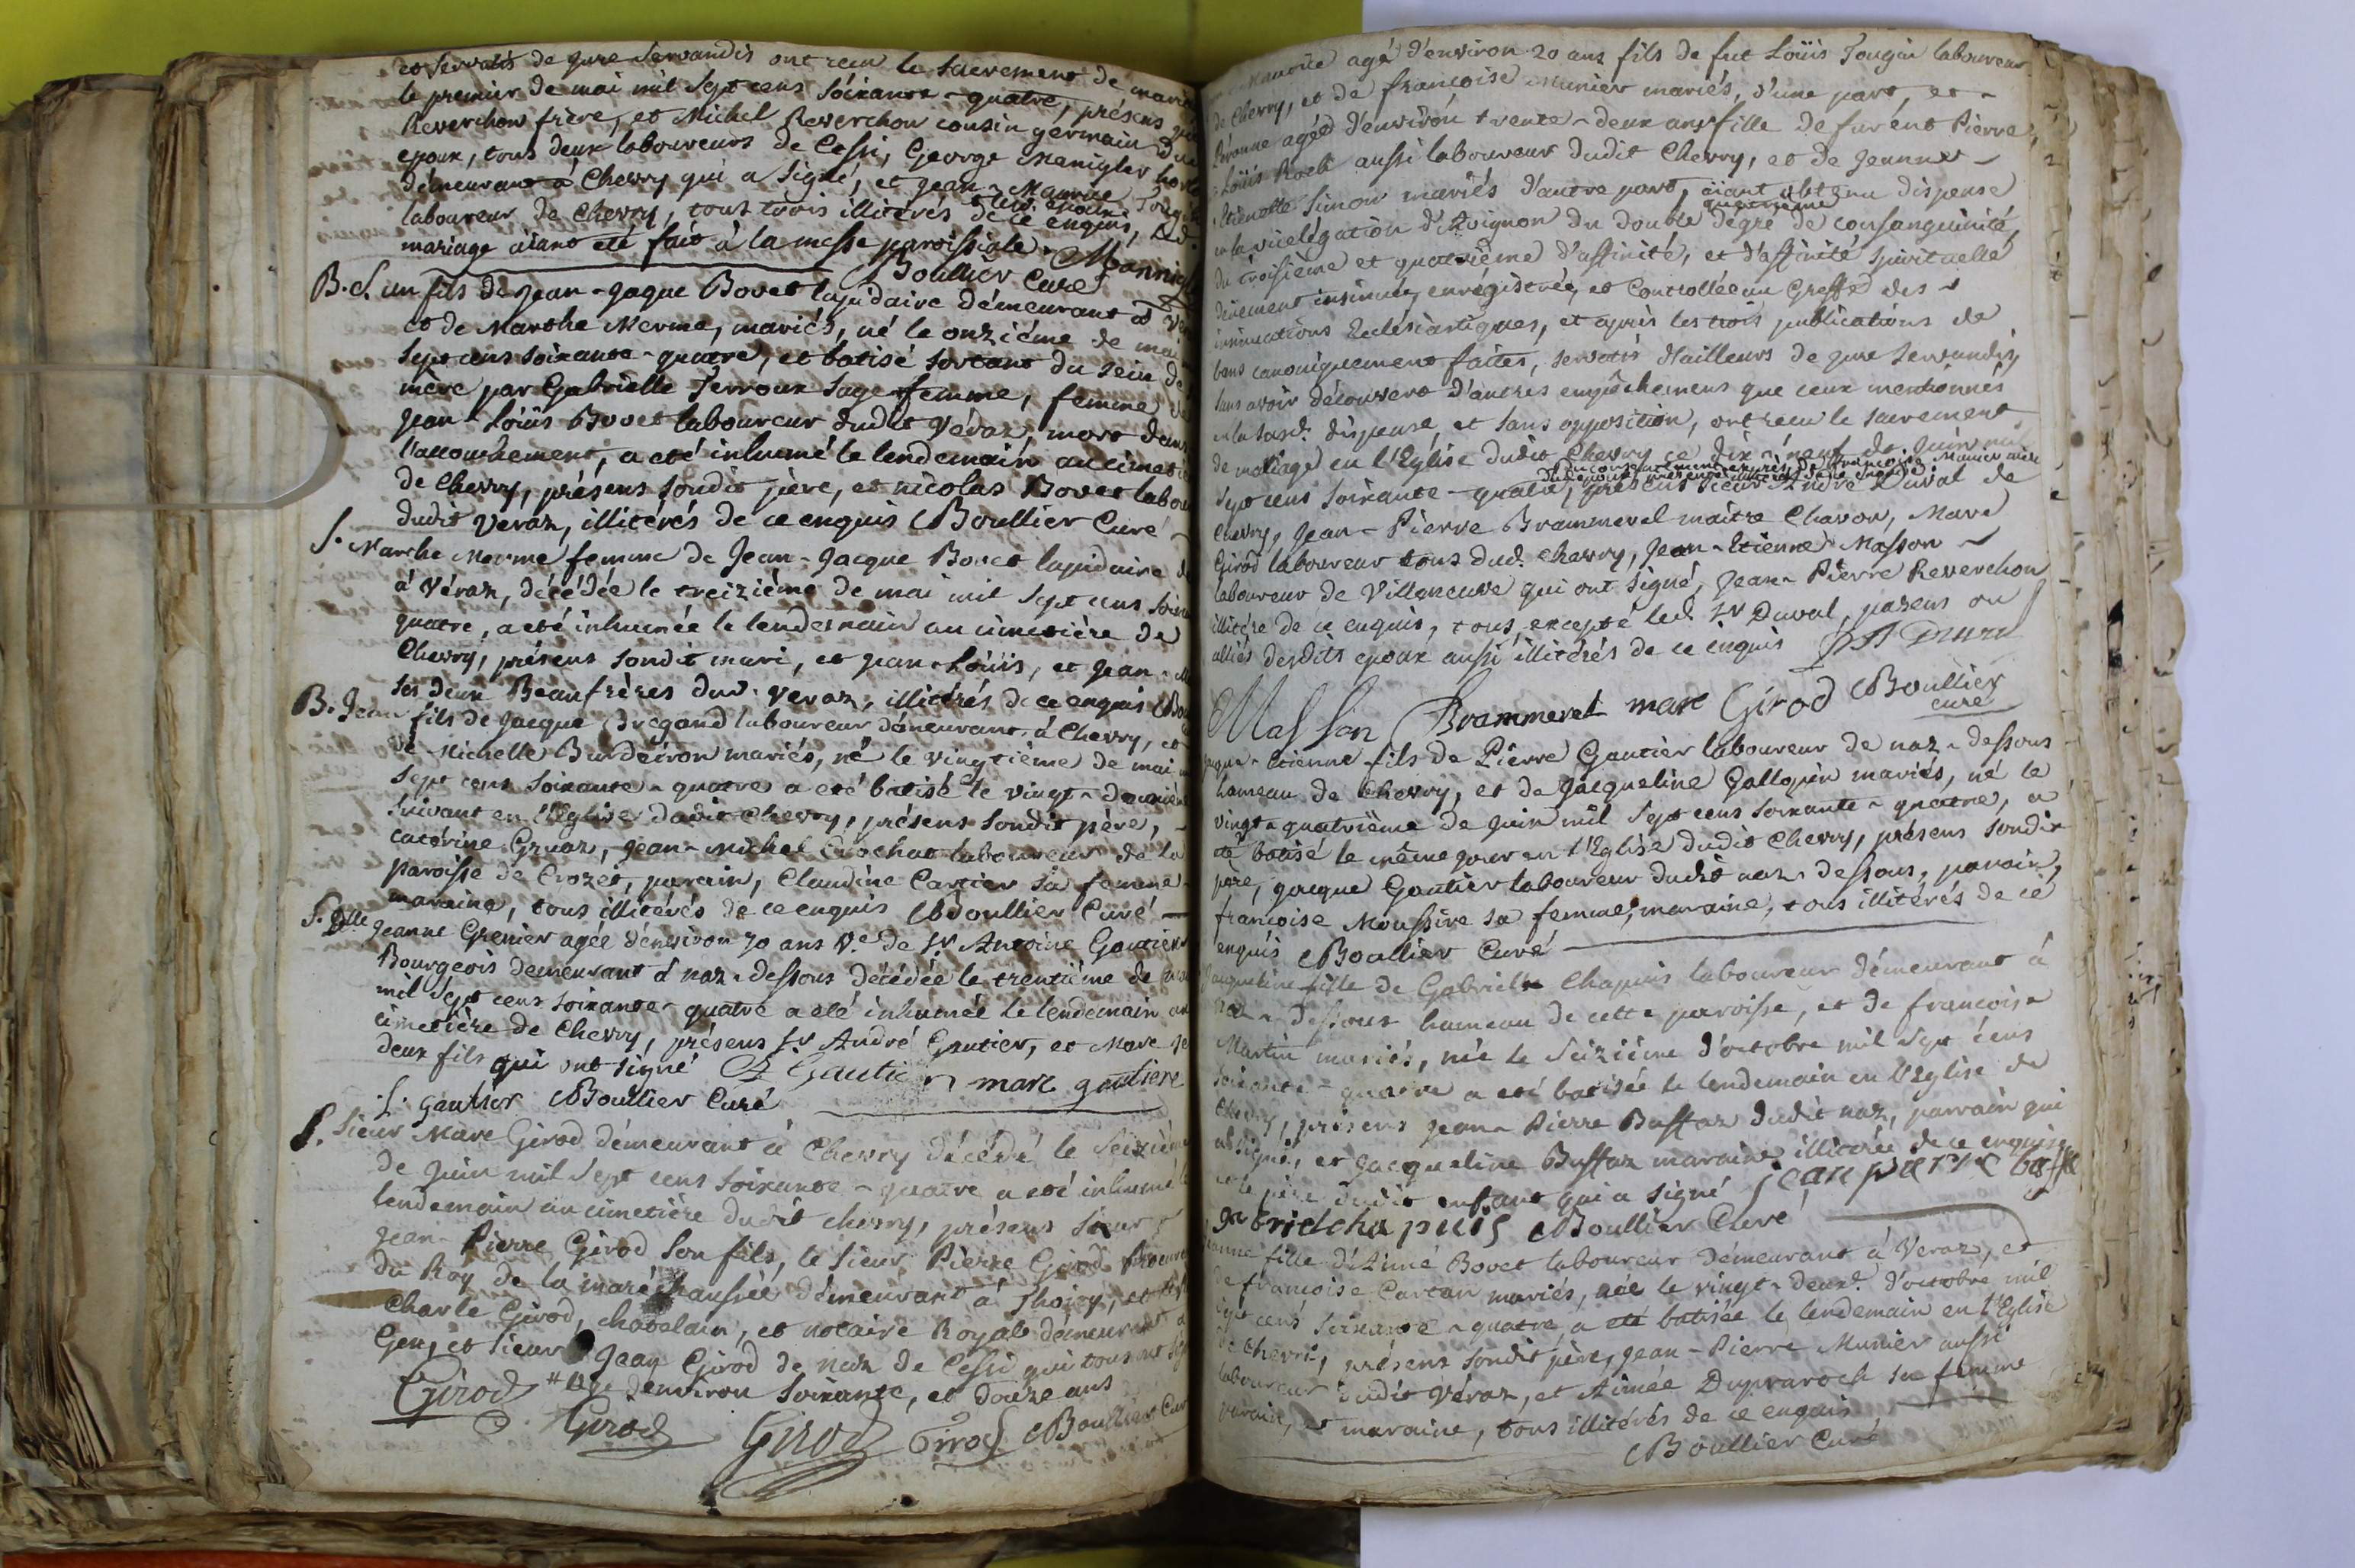 et servatis de jure servandis ont recu le sacrement de
le premier de mai mil sept cens soixante-quatre, présens
Reverchon frère, et Michel Reverchon cousin germain
epoux, tous deux laboureurs de Cessi, George Manigler
démeurant à Chevry qui a signé, et Jean-Maurice
laboureur de Chevry, tous trois illitérés de ce enquis, led.
mariage aiant eté fait à la messe paroissiale.
Boullier Curé
B.S. un fils de Jean-Jaque Bovet lapidaire démeurant à
et de Marthe Merme, mariés, né le onziéme de mai
sept cens soixante-quatre, et batisé sortant du sein de
mere par Gabrielle Terroux sage femme, femme de
Jean-Loüis Bovet laboureur dudit Véraz, mort dans
l'accouchement, a eté inhumé le lendemain au
de Chevry, présens sondit père, et nicolas Bovet
dudit Veraz, illitérés de ce enquis Boullier Curé
S. Marthe Merme femme de Jean-Jacque Bovet lapidaire
à Véraz, décédée le treiziéme de mai mil sept cens
quatre, a eté inhumée le lendemain au cimetière de
Chevry, présens sondit mari, et Jean-Loüis, et Jean-
ses deux Beaufrères dud. Veraz, illitérés de ce enquis
B. Jean fils de Jacque Dregand laboureur démeurant à Chevry, et
de Michelle Burdeiron mariés, né le vingtiéme de mai
sept cens soixante-quatre a eté batisé le vingt-
suivant en l'Eglise dudit Chevry, présens sondit père,
catérine Gruaz, Jean-Michel Crochat laboureur de la
paroisse de Crozet, parain, Claudine Cartier sa femme
maraine, tous illitérés de ce enquis Boullier Curé
S. Dlle Jeanne Grenier agée d'environ 70 ans Ve de Sr Antoine Gautier
Bourgeois demeurant à naz-dessous décédée le trentiéme de
mil sept cens soixante-quatre a eté inhumée le lendemain au
cimetière de Chevry, présens Sr André Gautier, et Marc
deux fils qui ont signé A Gautier marc gautiere
gautier Boullier Curé
S. Sieur Marc Girod démeurant à Chevry décédé le seiziéme
de juin mil sept cens soixante-quatre a eté inhumé
lendemain au cimetière dudit chevry, présens sieur
Jean-Pierre Girod son fils, le sieur Pierre Girod
du Roy de la maréchaussée démeurant à Thoiry, et
Charle Girod, chatelain, et notaire Royal démeurant à
Gex, et sieur Jean Girod de naz de Cessi qui tous ont
Girod # agé d'environ soixante, et douze ans
Girod Girod Girod Boullier
Maurice agé d'environ 20 ans fils de feu Loüis Tougin laboureur
de Chevry, et de francoise Munier mariés, d'une part, et
Péronne agée d'environ trente-deux ans fille de furent Pierre
Loüis Roch aussi laboureur dudit Chevry, et de Jeanne
Etienette Simon mariés d'autre part, aiant obtenu dispense
quatrieme
en la vicelégation d'Avignon du double dégré de consanguinité,
du troisieme et quatriéme d'affinité, et d'affinité spirituelle
düement insinuée, enrégistrée, et Controllée au Greffe des
insinuations Eclésiastiques, et après les trois publications de
bans canoniquement faites, servatis d'ailleurs de jure servandis,
sans avoir découvert d'autres empêchemens que ceux mentionnés
en la susd. dispense, et sans opposition, ont recu le sacrement
de mariage en l'Eglise dudit Chevry ce dix-neuf de juin mil
du consentement exprès de francoise Munier mère
sept cens soixante-quatre, présens sieur André Duval de
Chevry, Jean-Pierre Brammerel maitre Charon, Marc
Girod laboureur tous dud. Chevry, Jean-Etienne Masson
laboureur de Villeneuve qui ont signé, Jean-Pierre Reverchon
illitére de ce enquis, tous, excepté led. Sr Duval, parens ou
alliés desdits epoux aussi illitérés de ce enquis
Masson Brammerel marc Girod Boullier
curé
Jaque-Etienne fils de Pierre Gautier laboureur de naz-dessous
hameau de Chevry, et de Jacqueline Gallopin mariés, né le
vingt-quatriéme de juin mil sept cens soixante-quatre, a
eté batisé le même jour en l'Eglise dudit Chevry, présens sondit
père, Jacque Gautier laboureur dudit naz-dessous, parain,
francoise Moussire sa femme, maraine, tous illitérés de ce
enquis Boullier Curé
Jacqueline fille de Gabriel Chapuis laboureur démeurant à
Naz-dessous hameau de cette paroisse, et de francoise
Martin mariés, née le seiziéme d'octobre mil sept cens
soixante-quatre a eté batisée le lendemain en l'Eglise de
Chevry, présens Jean-Pierre Buffaz dudit naz, parrain qui
a signé, et Jacqueline Buffaz maraine illitérée de ce enquise
et le père dudit enfant qui a signé jean pierre
gabriel chapuis Boullier Curé
Jeanne fille d'Aimé Bovet laboureur démeurant à Veraz, et
de francoise Cartan mariés, née le vingt-deux d'octobre mil
sept cens soixante-quatre a eté batisée le lendemain en l'Eglise
de Chevri, présens sondit père, Jean-Pierre Munier aussi
laboureur dudit Véraz, et Aimée Dupraroch sa femme
parain, et maraine, tous illitérés de ce enquis
Boullier Curé